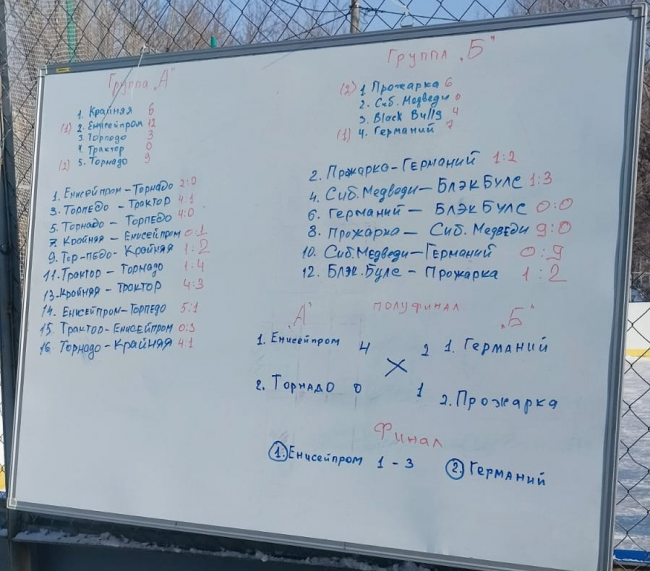 Группа „А"
1. Крайняя 6
(1) 2. Енисейпром 12
3 Торпедо 3
4. Трактор 0
(2) 5. Торнадо 9
1. Енисейпром-Торнадо 2:0
3. Торпедо - Трактор 4:1
5. Торнадо - Торпедо 4:0
7. Крайняя - Енисейпром 0:1
9. Тор-педо - Крайняя 1:2
11. Трактор - Торнадо 1:4
13. Крайняя - Трактор 4:3
14. Енисейпром-Торпедо 5:1
15. Трактор-Енисейпром 0:3
16. Торнадо-Крайняя 4:1
Группа „Б"
(2) 1 Прожарка 6
2. Сиб. Медведи 0
3. Black Bulls 4
(1) 4. Германий 7
2. Прожарка-Германий 1:2
4. Сиб. Медведи-Блэк Булс 1:3
6. Германий - Блэк Булс 0:0
8. Прожарка - Сиб. Медведи 9:0
10. Сиб. Медведи-Германий 0:9
12. Блэк. Булс - Прожарка 1:2
„А" полуфинал „Б"
1. Енисейпром 4 2 1. Германий
2. Торнадо 0 1 2. Прожарка
Финал
1. Енисейпром 1-3 2. Германий